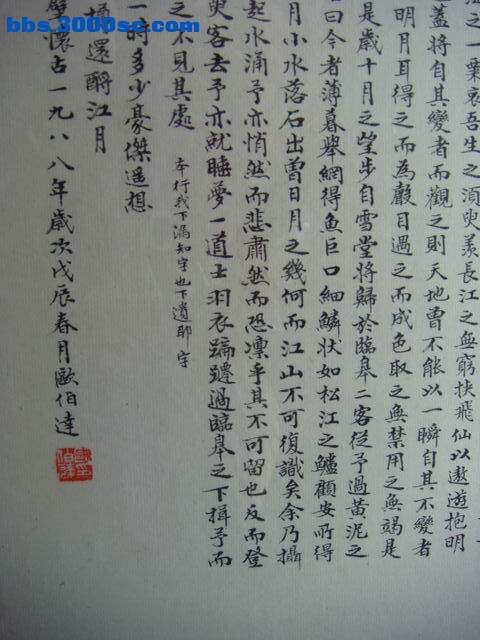 江之一粟哀吾生之須臾羨長江之無窮挾飛仙以遨遊抱明
蓋將自其變者而觀之則天地曾不能以一瞬自其不變者
明月耳得之而為聲目遇之而成色取之無禁用之無竭是
是歲十月之望步自雪堂將歸於臨皋二客從予過黃泥之
曰今者薄暮舉網得魚巨口細鱗狀如松江之鱸顧安所得
月小水落石出曾日月之幾何而江山不可復識矣余乃攝
起水涌予亦悄然而悲肅然而恐凜乎其不可留也反而登
臾客去予亦就睡夢一道士羽衣蹁躚過臨皋之下揖予而
之不見其處
本行我下漏知字也下遺耶字
一時多少豪傑遙想
還酹江月
壁懷古一九八八年歲次戊辰春月歐伯達
bbs.3000sc.com